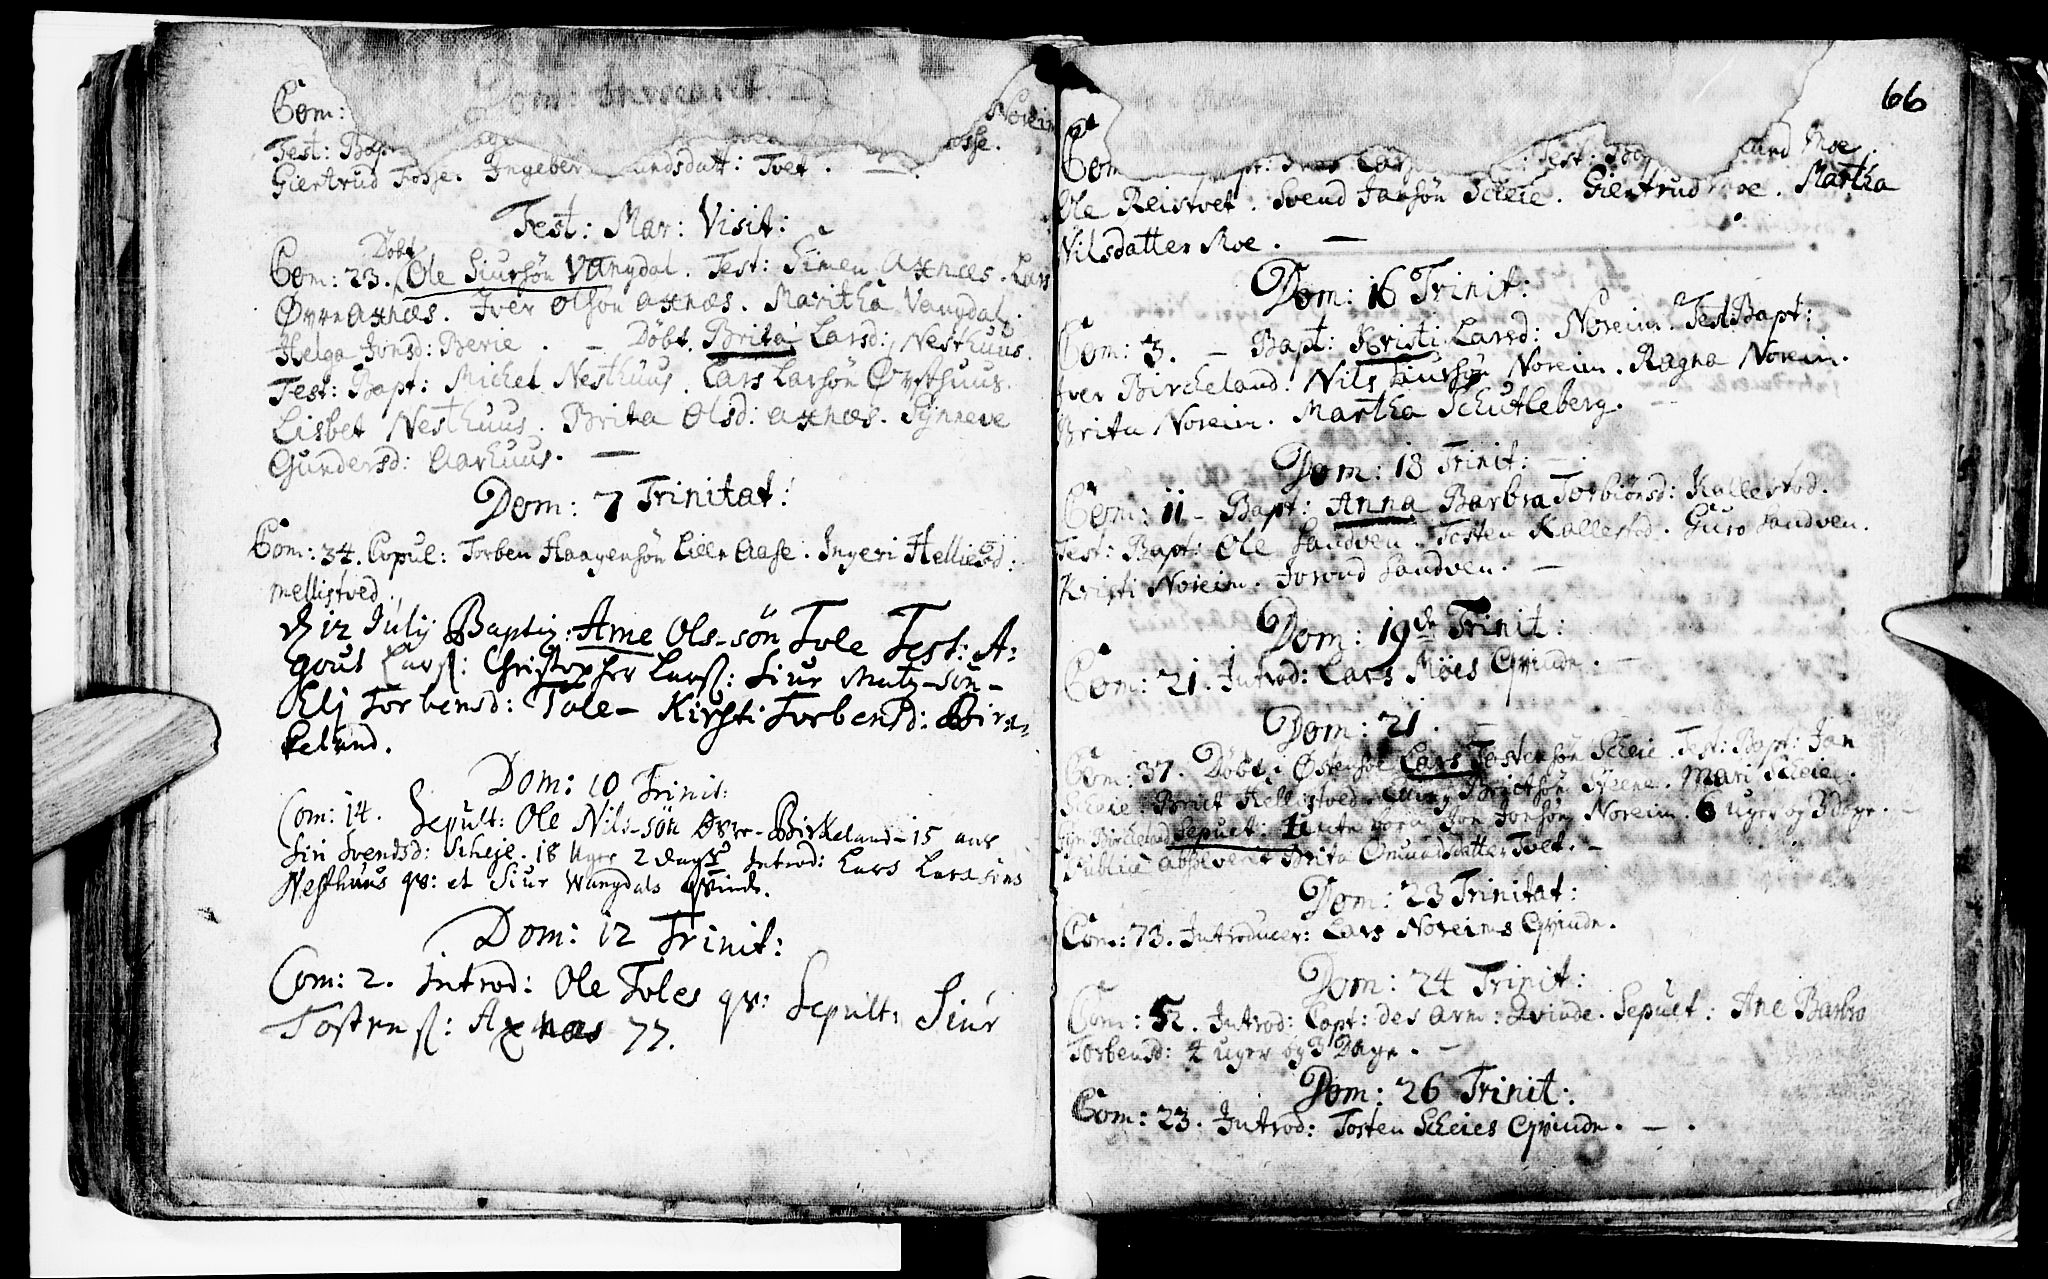 Com: Noreim
Test: Bap osse.
Giertrud Fosse. Ingeber undsdatt: Tvet. —
Fest: Mar: Visit:
Döbt
Com: 23. Ole Siursön Vangdal. Test: Simen Axnæs. Lars
Øvre Axnæs. Iver Olsøn Axnæs. Maritha Vangdal.
Helga Jonsd: Berie. — Döbt. Brita Larsd: Nesthuus.
Test: Bapt: Michel Nesthuus. Lars Larsön Øvsthuus.
Lisbet Nesthuus. Brita Olsd: Axnæs. Synneve
Gundersd: Aarhuus. —
Dom: 7 Trinitat:
Com: 34. Copul: Torben Haagensön Lille Aase. Ingeri Helliesd:
mellistved.
d 12 Julij Baptiz: Arne Ols-sön Tole Test: A:
gout Larß: Christopher Larß: Siur Matz-sön-
Elj Torbensd: Tole- Kirsti Torbensd: Bir-
keland.
Dom: 10 Trinit:
Com: 14. Sepult: Ole Nils-sön Øvre-Birkeland-15 aar
Siri Svendsd: Scheje. 18 Uger 2 dage Introd: Lars Larssöns
Nesthuus qv: et Siur Wangdals qvinde.
Dom: 12 Trinit:
Com: 2. Introd: Ole Toles qv: Sepult: Siur
Tostenß: Axnæs 77.
66
Com Test: und Moe.
Ole Reistvet. Svend Jansön Scheie. Giertrud oe. Martha
Nilsdatter Moe. —
Dom: 16 Trinit:
Com: 3. — Bapt: Kristi Larsd: Noreim. Test Bapt:
Iver Bircheland. Nils Siursön Noreim. Ragna Noreim.
Brita Noreim. Martha Schutleberg.
Dom: 18 Trinit: —
Com: 11 - Bapt: Anna Barbra Torbiönsd: Kallestod.
Test: Bapt: Ole Sandven. Tosten Kallestod. Guro Sandven.
Kristi Noreim. Joroud Sandven. —
Dom: 19de Trinit:
Com: 21. Introd: Lars Möes Qvinde. —
Dom: 21.
Com: 37. Döbt i Østensöe Lars Tostensön Scheie. Test: Bapt: Jan
Scheie Brict Hellistved. Brictsön Steene. Mari Scheie.
Bircheland Sepult: Jon Jonsön Noreim. 6 Uger og 3 Dage. —
Publice absolverit Brita Omundsdatter Tvet. —
Dom: 23 Trinitat:
Com: 73. Introducer: Lars Noreims Qvinde.
Dom: 24 Trinit:
Com: 52. Introd: Capt: des Arm: Qvinde. Sepult: Ane Barbro
Torbensd: 4 uger og 3 Dage. —
Dom: 26 Trinit:
Com: 23. Introd: Tosten Scheies Qvinde. — .